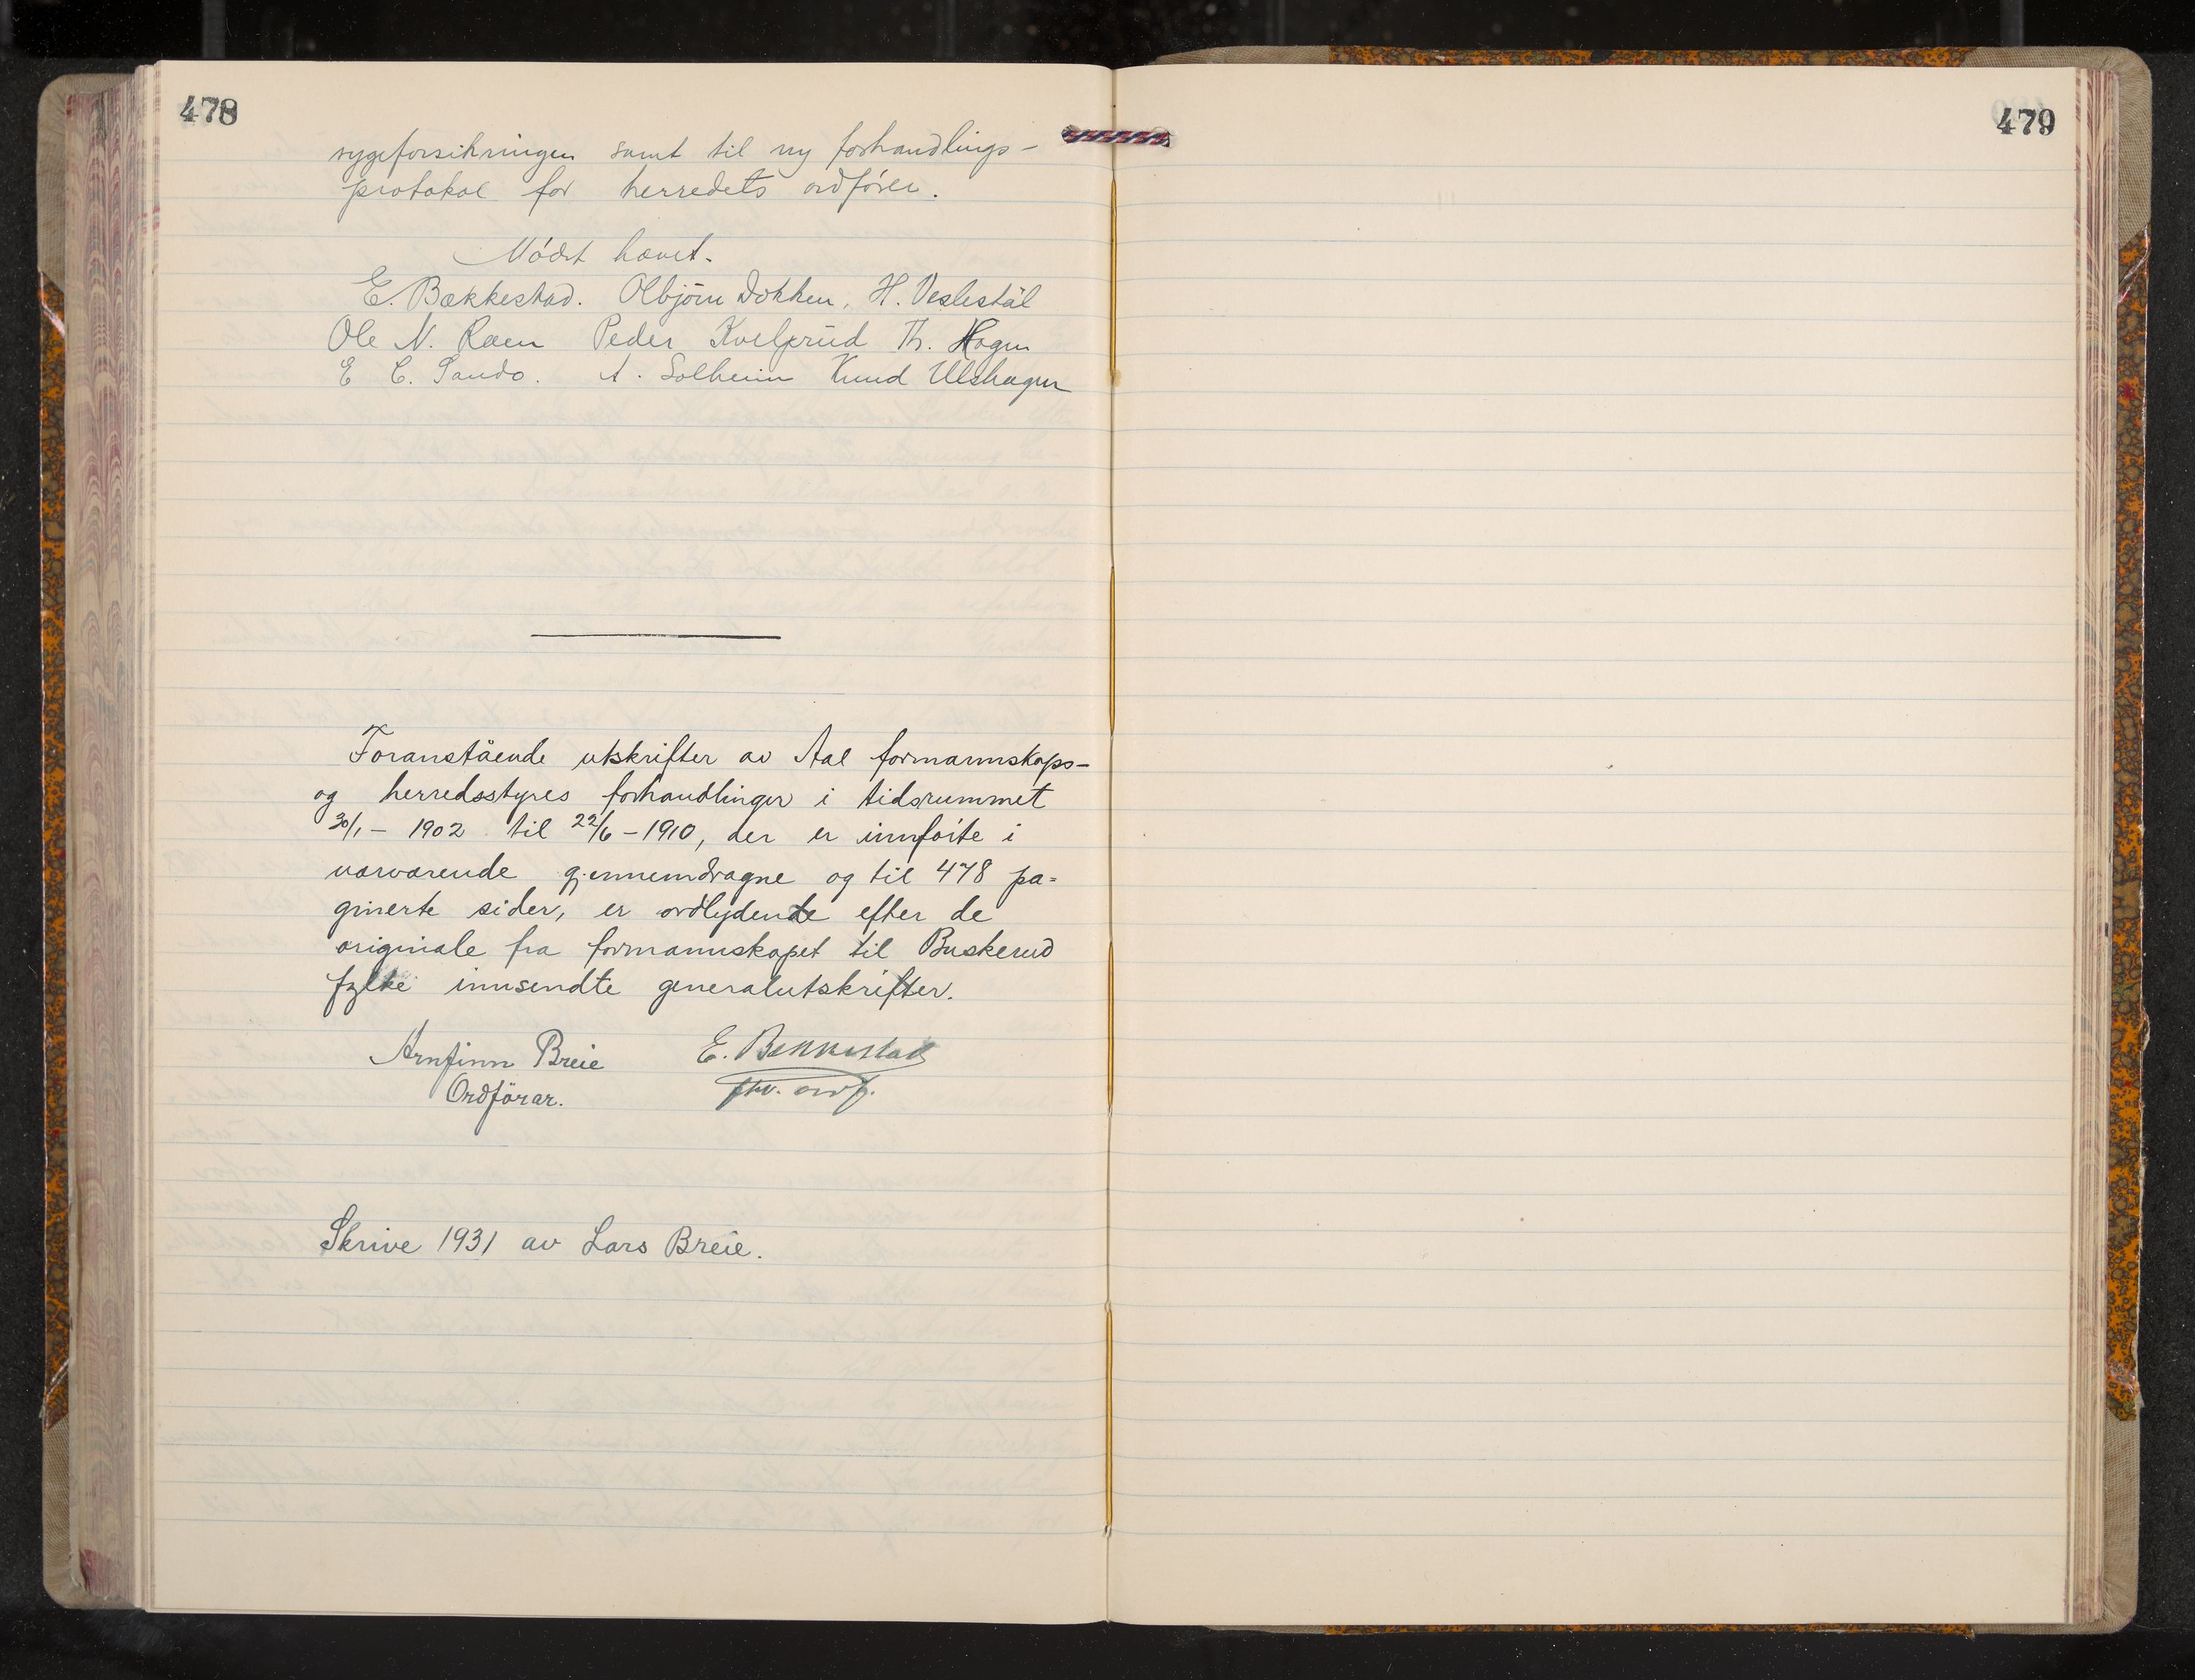 478
sygeforsikringen samt til ny forhandlings-
protokol for herredets ordfører.
Mødet hævet.
E. Bækkestad. Olbjørn Dokken, H. Veslestål
Ole N. Raen Peder Kvelprud Th. Hagen
E C. Sando. A. Solheim Knud Ulshagen
Foranstående utskrifter av Aal formannskaps-
og herredsstyres forhandlinger i tidsrummet
30/1 - 1902 til 22/6 - 1910, der er innførte i
nærværende gjennemdragne og til 478 pa=
ginerte sider, er ordlydende efter de
originale fra formannskapet til Buskerud
fylke innsendte generalutskrifter.
Arnfinn Breie E. Bekkestad
Ordførar. fhv. ordf.
Skrive 1931 av Lars Breie.
479